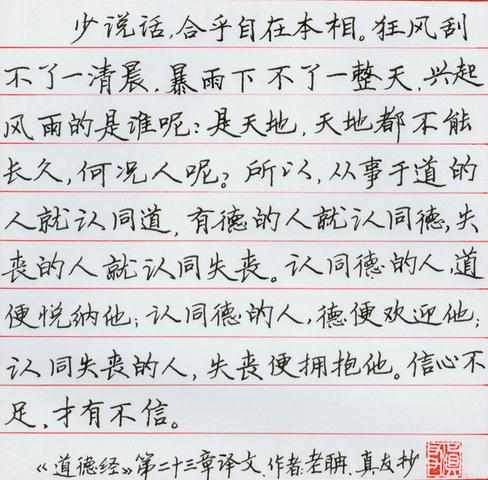 少说话,合乎自在本相。狂风刮
不了一清晨,暴雨下不了一整天,兴起
风雨的是谁呢?是天地,天地都不能
长久,何况人呢?所以,从事于道的
人就认同道,有德的人就认同德,失
丧的人就认同失丧。认同德的人,道
便悦纳他;认同德的人,德便欢迎他;
认同失丧的人,失丧便拥抱他。信心不
足,才有不信。
《道德经》第二十三章译文,作者:老聃,真友抄